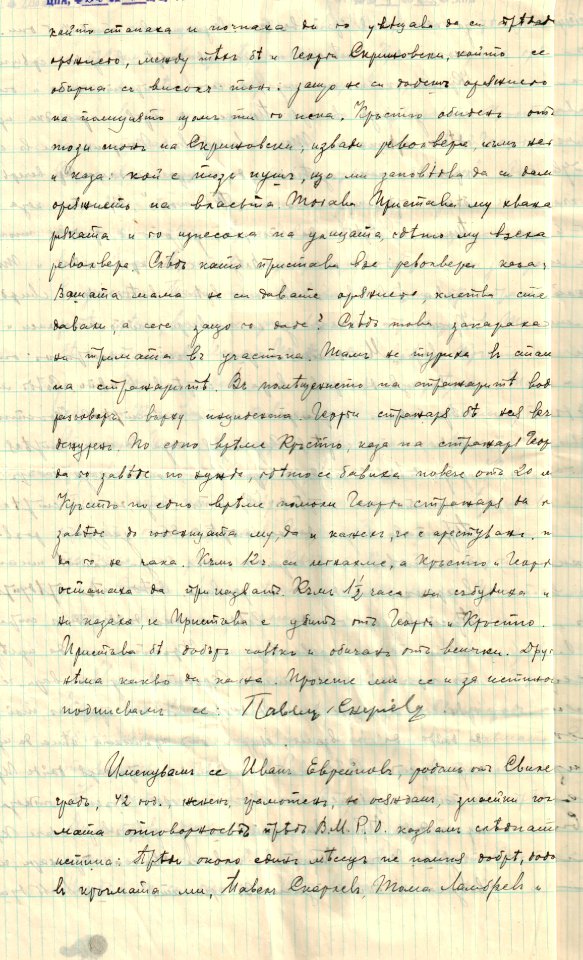 който станаха и почнаха да го увещава да си предаде
оржжието, между тѣхъ бѣ и Георги Скрижовски, който се
обърна съ високъ тонъ: защо не си дадешъ оржжието
на полицията щомъ ти го иска. Кръстю обиденъ отъ
този тонъ на Скрижовски, извади револвера, къмъ него
и каза: кой е този пушъ, що ми заповѣдва да си дамъ
оржжието на властьта. Тогава Пристава му хвана
ржката и го изнесоха на улицата, гдѣто му взеха
револвера. Слѣдъ като пристава взе револвера каза:
Вашата мама не си давате оржжието, клетва сте
давали, а сега защо го даде? Слѣдъ това закараха
ни тримата въ участъка. Тамъ не туриха въ стаята
на стражаритѣ. Въ помѣщението на стражаритѣ вод
разговоръ върху инцидента. Георги стражаря бѣ
дежуренъ. По едно врѣме Кръстю, каза на стражаря Георги
да го заведе по нужда, гдѣто се бавиха повече отъ 20 м
Кръстю по едно врѣме помоли Георги стражаря да го
заведе до годеницата му, да и кажелъ, че е арестуванъ, и
да го не чака. Къмъ 12 ч. си легнахме, а Кръстю и Георги
останаха да приказватъ. Къмъ 1½ часа ни събудиха и
ни казаха, че Пристава е убитъ отъ Георги и Кръстю.
Пристава бѣ добъръ човѣкъ и обичанъ отъ всички. Друго
нѣма какво да кажа. Прочете ми се и за истинность
подписвамъ се: Павелъ Скерлевъ
Именувамъ се Иванъ Еврейновъ, роденъ отъ Свиле
градъ, 42 год., жененъ, грамотенъ, не осжданъ, знаейки гол
мата отговорность прѣдъ В.М.Р.О. казвамъ слѣдната
истина: Прѣди около единъ мѣсецъ не помня добрѣ, дойдо
въ кръчмата ми, Павелъ Скерлевъ, Тома Ламбревъ и